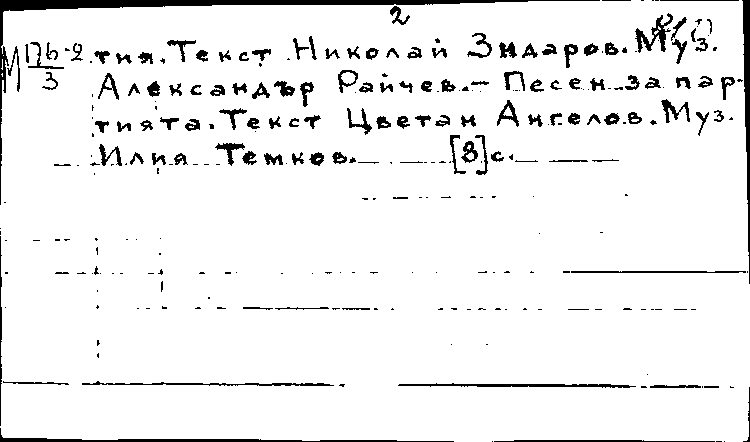 2
М Пб-2 тия. Текст Николай Зидаров. Муз.
3 Александър Райчев. – Песен за пар-
тията. Текст Цветан Ангелов. Муз.
Илия Темков. [8] с.